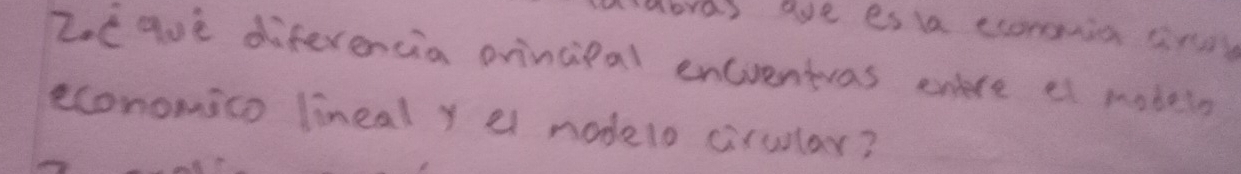 que es la economia
2.¿què diferencia principal encuentras entre el modelo
economico lineal y el modelo circular?